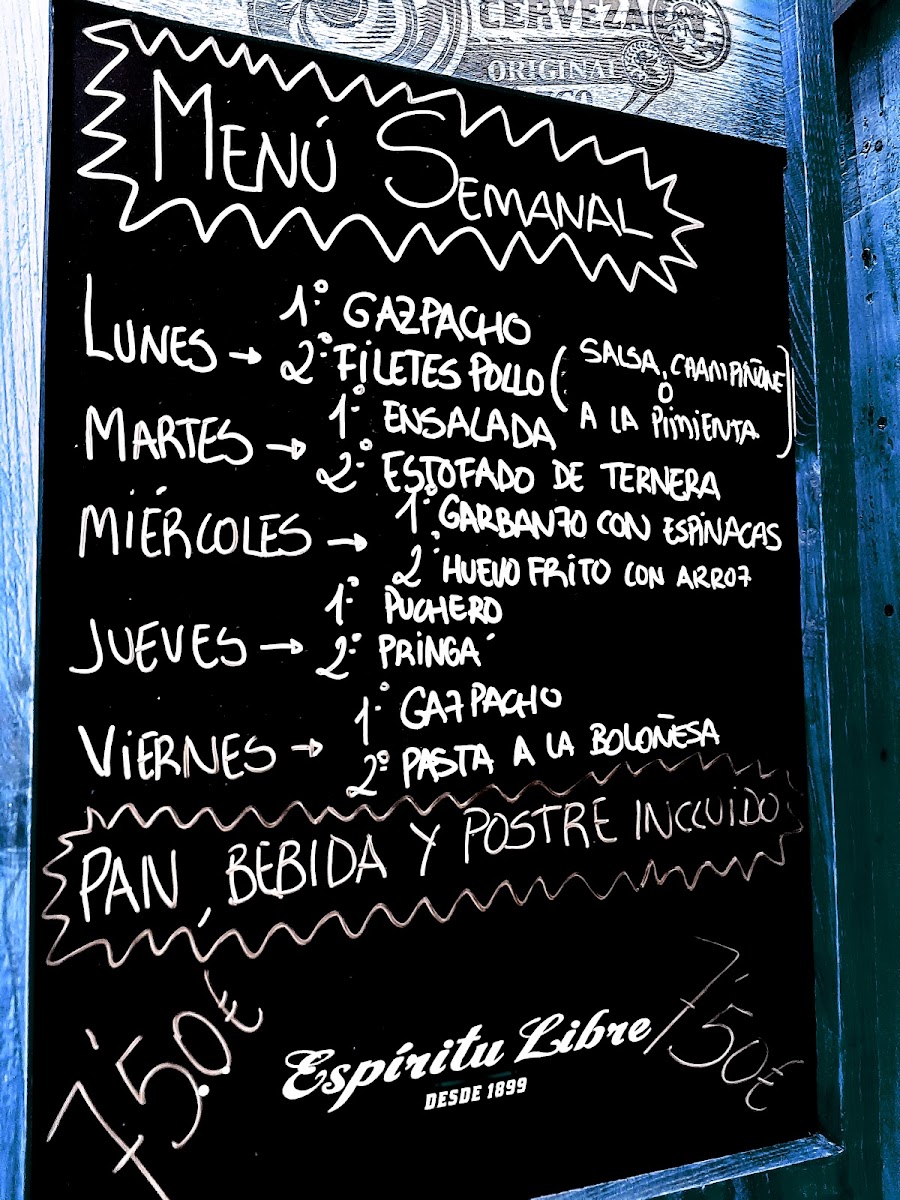 CERVEZA
ORIGINAL
MENÚ SEMANAL
LUNES → 1º GAZPACHO
2º FILETES POLLO (SALSA CHAMPIÑONE
O
A LA PIMIENTA)
MARTES → 1º ENSALADA
2º ESTOFADO DE TERNERA
MIÉRCOLES → 1º GARBANZO CON ESPINACAS
2º HUEVO FRITO CON ARROZ
JUEVES → 1º PUCHERO
2º PRINGÁ
VIERNES → 1º GAZPACHO
2º PASTA A LA BOLOÑESA
PAN, BEBIDA Y POSTRE INCLUIDO
7'50€
Espíritu Libre
DESDE 1899
7'50€